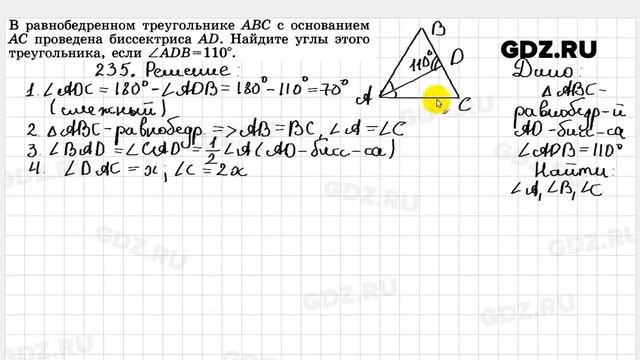 В равнобедренном треугольнике ABC с основанием
AC проведена биссектриса AD. Найдите углы этого
треугольника, если ∠ADB=110°.
235. Решение:
1. ∠ADC = 180° - ∠ADB = 180° - 110° = 70°
(смежный)
2. △ABC - равнобедр => AB = BC, ∠A = ∠C
3. ∠BAD = ∠CAD = 1/2 ∠A (AD - бисс-са)
4. ∠DAC = x; ∠C = 2x
B
D
110°
A
C
GDZ.RU
Дано:
△ABC -
равнобедр-й
AD - бисс-са
∠ADB = 110°
Найти:
∠A, ∠B, ∠C
GDZ.RU
GDZ.RU
GDZ.RU
GDZ.RU